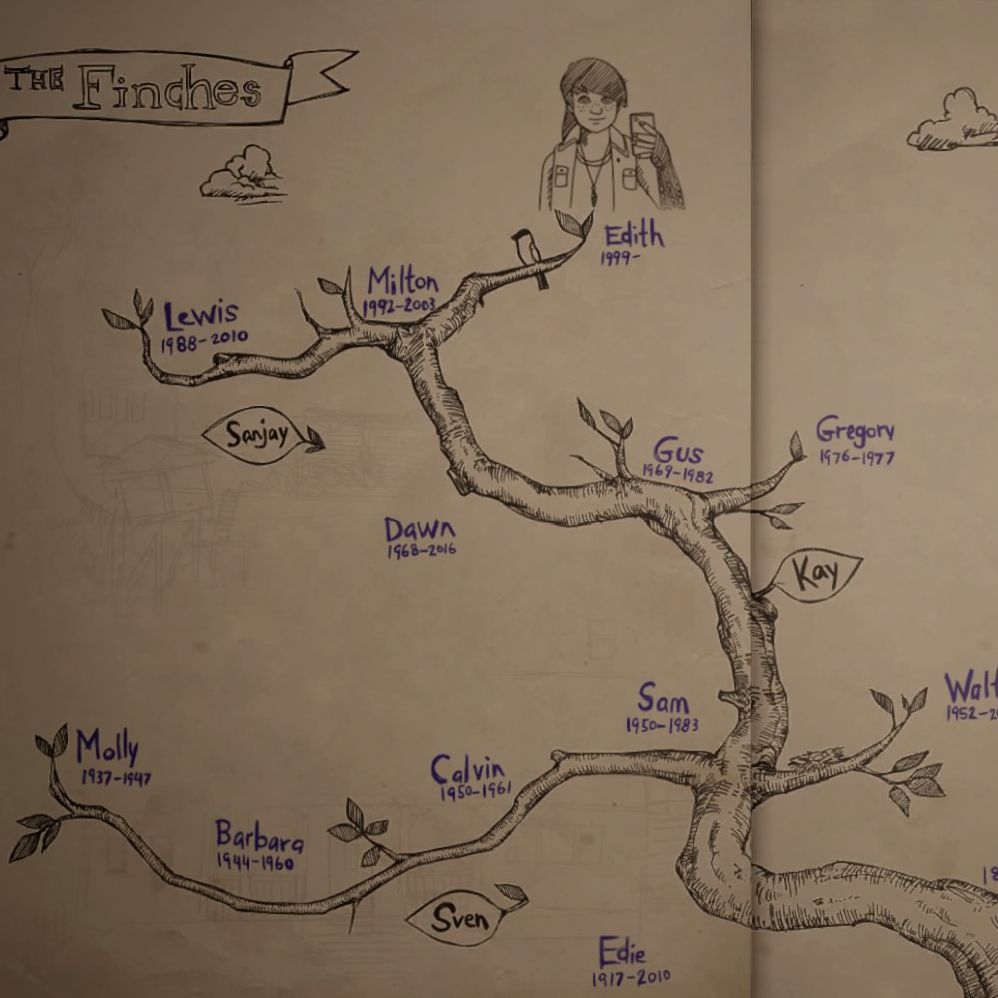 THE Finches
Edith
1999-
Milton
1992-2003
Lewis
1988-2010
Sanjay
Gus
1969-1982
Gregory
1976-1977
Dawn
1968-2016
Kay
Sam
1950-1983
Walt
1952-2
Molly
1937-1947
Calvin
1950-1961
Barbara
1944-1960
Sven
18
Edie
1917-2010